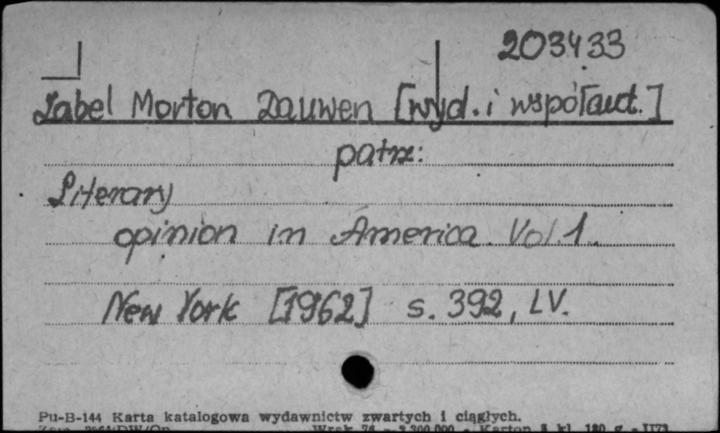 203433
Zabel Morton Dauwen [wyd. i współaut.]
patrz:
Literary
opinion in America. Vol. 1.
New York [1962] s. 392, LV.
Pu-B-144 Karta katalogowa wydawnictw zwartych i ciągłych.
Karton